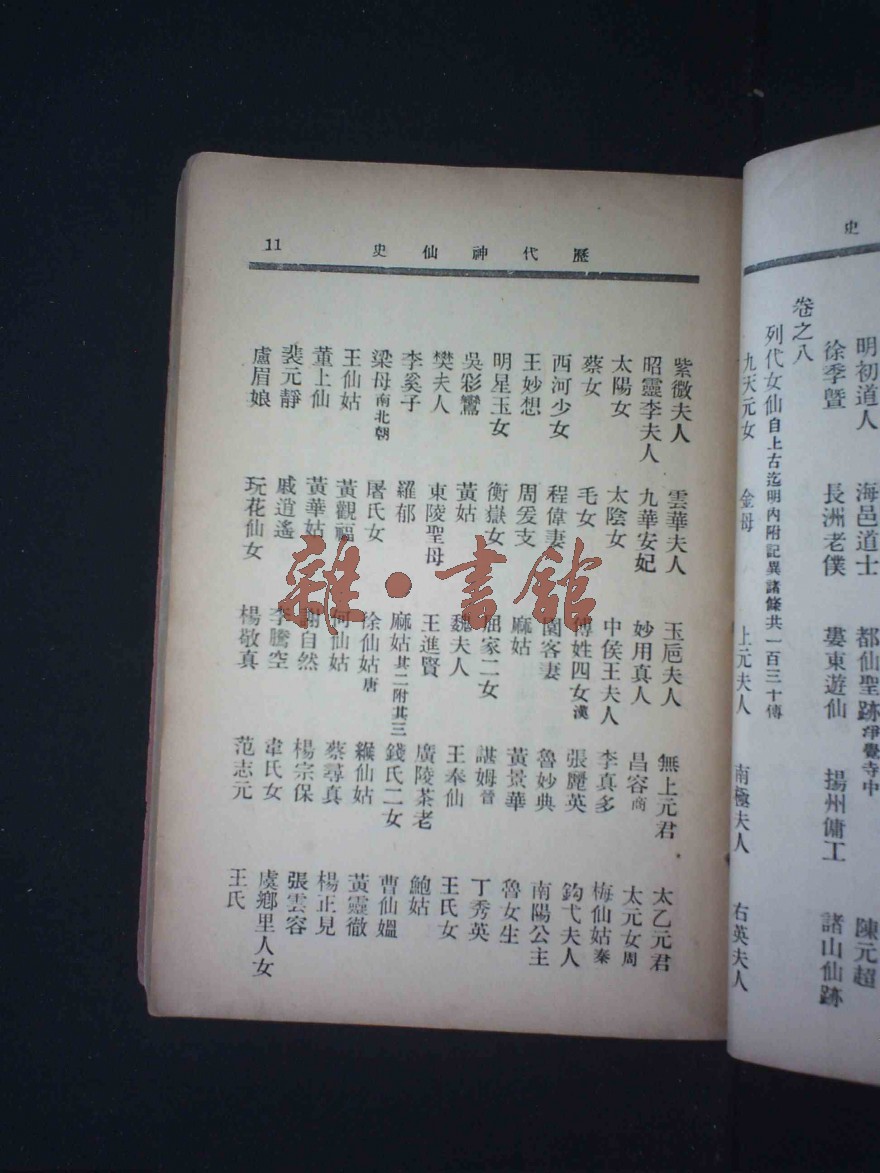 史
明初道人 海邑道士 都仙聖跡 寺中 陳元超
徐季暨 長洲老僕 婁東遊仙 揚州傭工 諸山仙跡
卷之八
列代女仙自上古迄明內附記異諸條共一百三十傳
九天元女 金母 上元夫人 南極夫人 右英夫人
歷代神仙史 11
紫微夫人 雲華夫人 玉巵夫人 無上元君 太乙元君
昭靈李夫人 九華安妃 妙用真人 昌容商 太元女周
太陽女 太陰女 中侯王夫人 李真多 梅仙姑秦
蔡女 毛女 傅姓四女漢 張麗英 鈎弋夫人
西河少女 程偉妻 園客妻 魯妙典 南陽公主
王妙想 周爰支 麻姑 黃景華 魯女生
明星玉女 衡嶽女 屈家二女 諶姆晉 丁秀英
吳彩鸞 黃姑 魏夫人 王奉仙 王氏女
樊夫人 東陵聖母 王進賢 廣陵茶老 鮑姑
李奚子 羅郁 麻姑其二附其三 錢氏二女 曹仙媼
梁母南北朝 屠氏女 徐仙姑唐 緱仙姑 黃靈徽
王仙姑 黃觀福 何仙姑 蔡尋真 楊正見
董上仙 黃華姑 謝自然 楊宗保 張雲容
裴元靜 戚逍遙 李騰空 韋氏女 虞鄉里人女
盧眉娘 玩花仙女 楊敬真 范志元 王氏
雜·書館